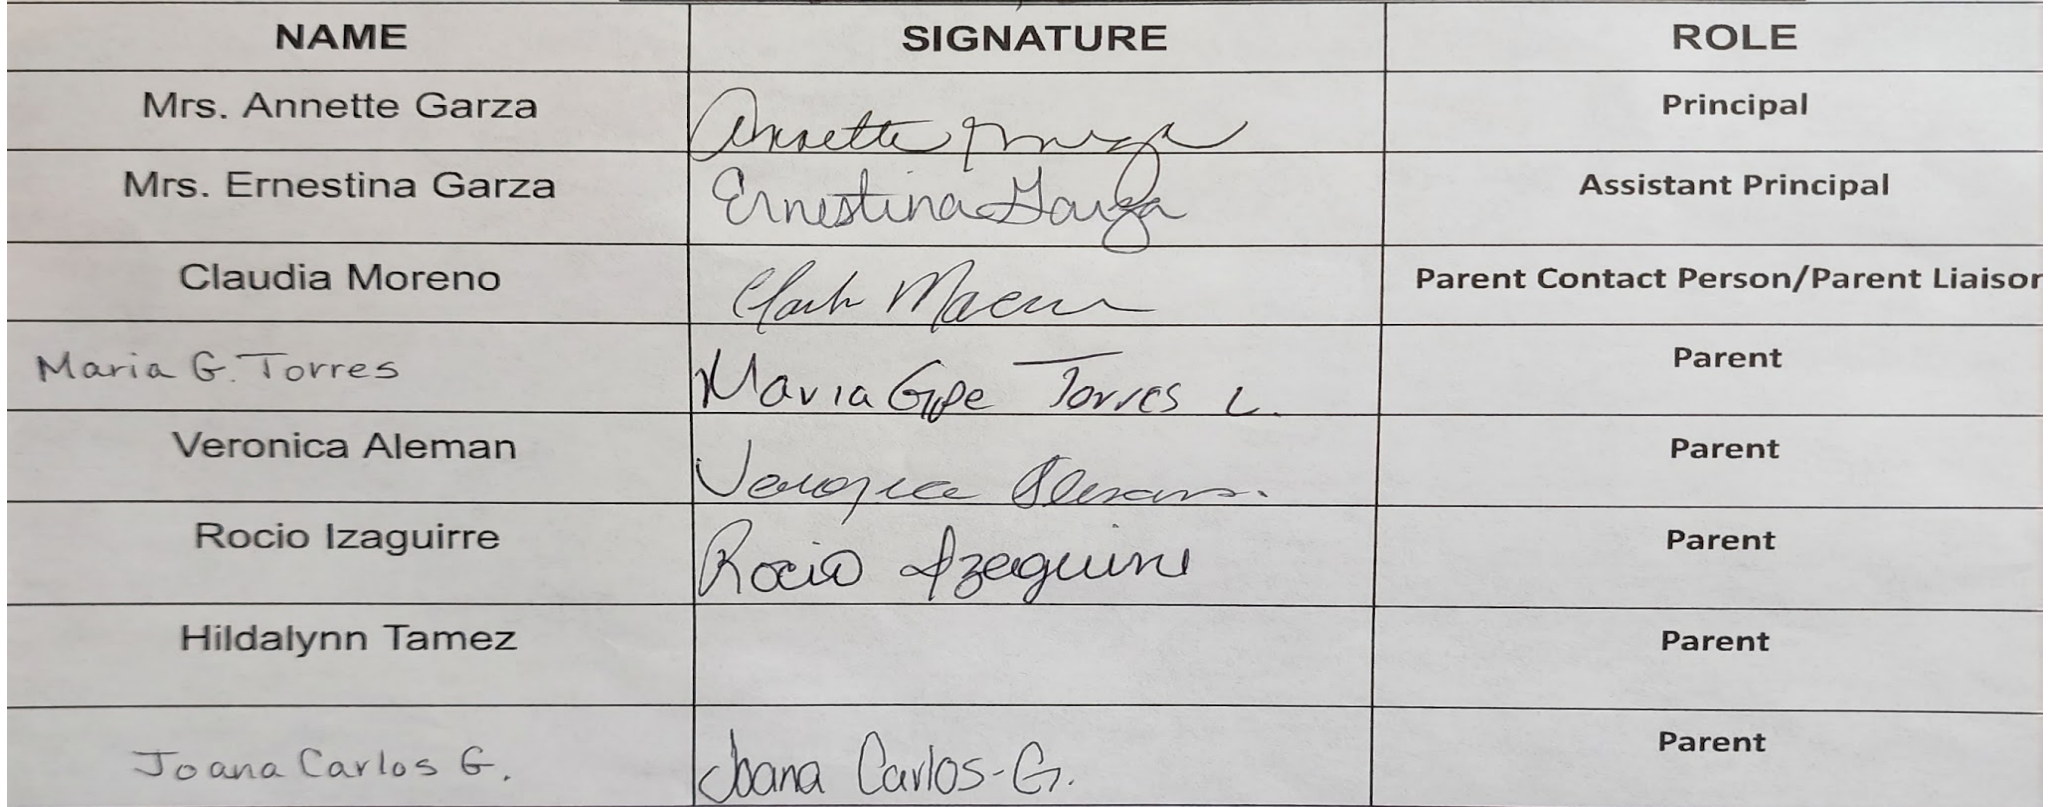 NAME SIGNATURE ROLE
Mrs. Annette Garza Annette Garza Principal
Mrs. Ernestina Garza Ernestina Garza Assistant Principal
Claudia Moreno Parent Contact Person/Parent Liaison
Maria G. Torres Maria Gpe Torres L. Parent
Veronica Aleman Veronica Aleman. Parent
Rocio Izaguirre Rocio Izaguirre Parent
Hildalynn Tamez Parent
Joana Carlos G. Joana Carlos-G. Parent